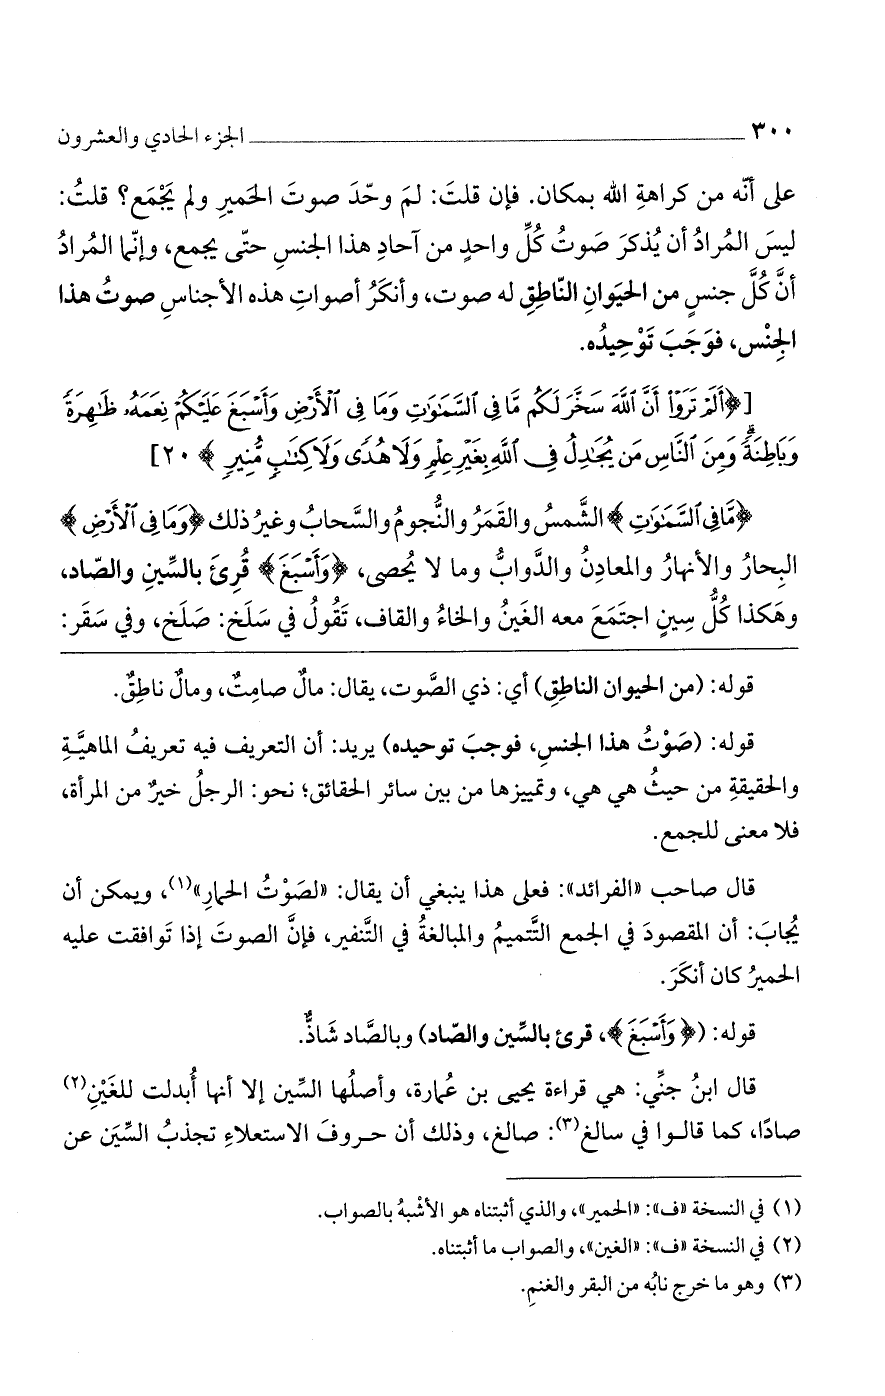 ٣٠٠ الجزء الحادي والعشرون
على أنّه من كراهةِ الله بمكان. فإن قلتَ: لمَ وحّدَ صوتَ الحَميرِ ولم يَجْمَع؟ قلتُ:
ليسَ المُرادُ أن يُذكرَ صَوتُ كُلِّ واحدٍ من آحادِ هذا الجنسِ حتّى يجمع، وإنّما المُرادُ
أنَّ كُلَّ جنسٍ من الحيَوانِ النّاطِقِ له صوت، وأنكَرُ أصواتِ هذه الأجناسِ صوتُ هذا
الجِنْس، فوَجَبَ تَوْحِيدُه.
[﴿أَلَمْ تَرَوْاْ أَنَّ ٱللَّهَ سَخَّرَ لَكُم مَّا فِى ٱلسَّمَٰوَٰتِ وَمَا فِى ٱلْأَرْضِ وَأَسْبَغَ عَلَيْكُمْ نِعَمَهُۥ ظَٰهِرَةً
وَبَاطِنَةً ۗ وَمِنَ ٱلنَّاسِ مَن يُجَٰدِلُ فِى ٱللَّهِ بِغَيْرِ عِلْمٍ وَلَا هُدًى وَلَا كِتَٰبٍ مُّنِيرٍ﴾ ٢٠]
﴿مَّا فِى ٱلسَّمَٰوَٰتِ﴾ الشَّمسُ والقَمَرُ والنُّجومُ والسَّحابُ وغيرُ ذلك ﴿وَمَا فِى ٱلْأَرْضِ﴾
البِحارُ والأنهارُ والمعادِنُ والدَّوابُّ وما لا يُحصى، ﴿وَأَسْبَغَ﴾ قُرِئَ بالسِّينِ والصّاد،
وهَكذا كُلُّ سِينٍ اجتَمَعَ معه الغَينُ والخاءُ والقاف، تَقُولُ في سَلَخ: صَلَخ، وفي سَقَر:
قوله: (من الحيوان الناطِقِ) أي: ذي الصَّوت، يقال: مالٌ صامِتٌ، ومالٌ ناطِقٌ.
قوله: (صَوْتُ هذا الجنسِ، فوجبَ توحيده) يريد: أن التعريف فيه تعريفُ الماهيَّةِ
والحقيقةِ من حيثُ هي هي، وتمييزها من بين سائر الحقائق؛ نحو: الرجلُ خيرٌ من المرأة،
فلا معنى للجمع.
قال صاحب «الفرائد»: فعلى هذا ينبغي أن يقال: «لصَوْتُ الحمارِ»(١)، ويمكن أن
يُجابَ: أن المقصودَ في الجمع التَّتميمُ والمبالغةُ في التَّنفير، فإنَّ الصوتَ إذا تَوافقت عليه
الحميرُ كان أنكَرَ.
قوله: (﴿وَأَسْبَغَ﴾، قرئ بالسِّين والصّاد) وبالصَّاد شَاذٌّ.
قال ابنُ جنِّي: هي قراءة يحيى بن عُمارة، وأصلُها السِّين إلا أنها أُبدلت للغَيْنِ(٢)
صادًا، كما قالـوا في سالغ(٣): صالغ، وذلك أن حـروفَ الاستعلاءِ تجذبُ السِّيَن عن
(١) في النسخة «ف»: «الحمير»، والذي أثبتناه هو الأشْبهُ بالصواب.
(٢) في النسخة «ف»: «الغين»، والصواب ما أثبتناه.
(٣) وهو ما خرج نابُه من البقر والغنمِ.